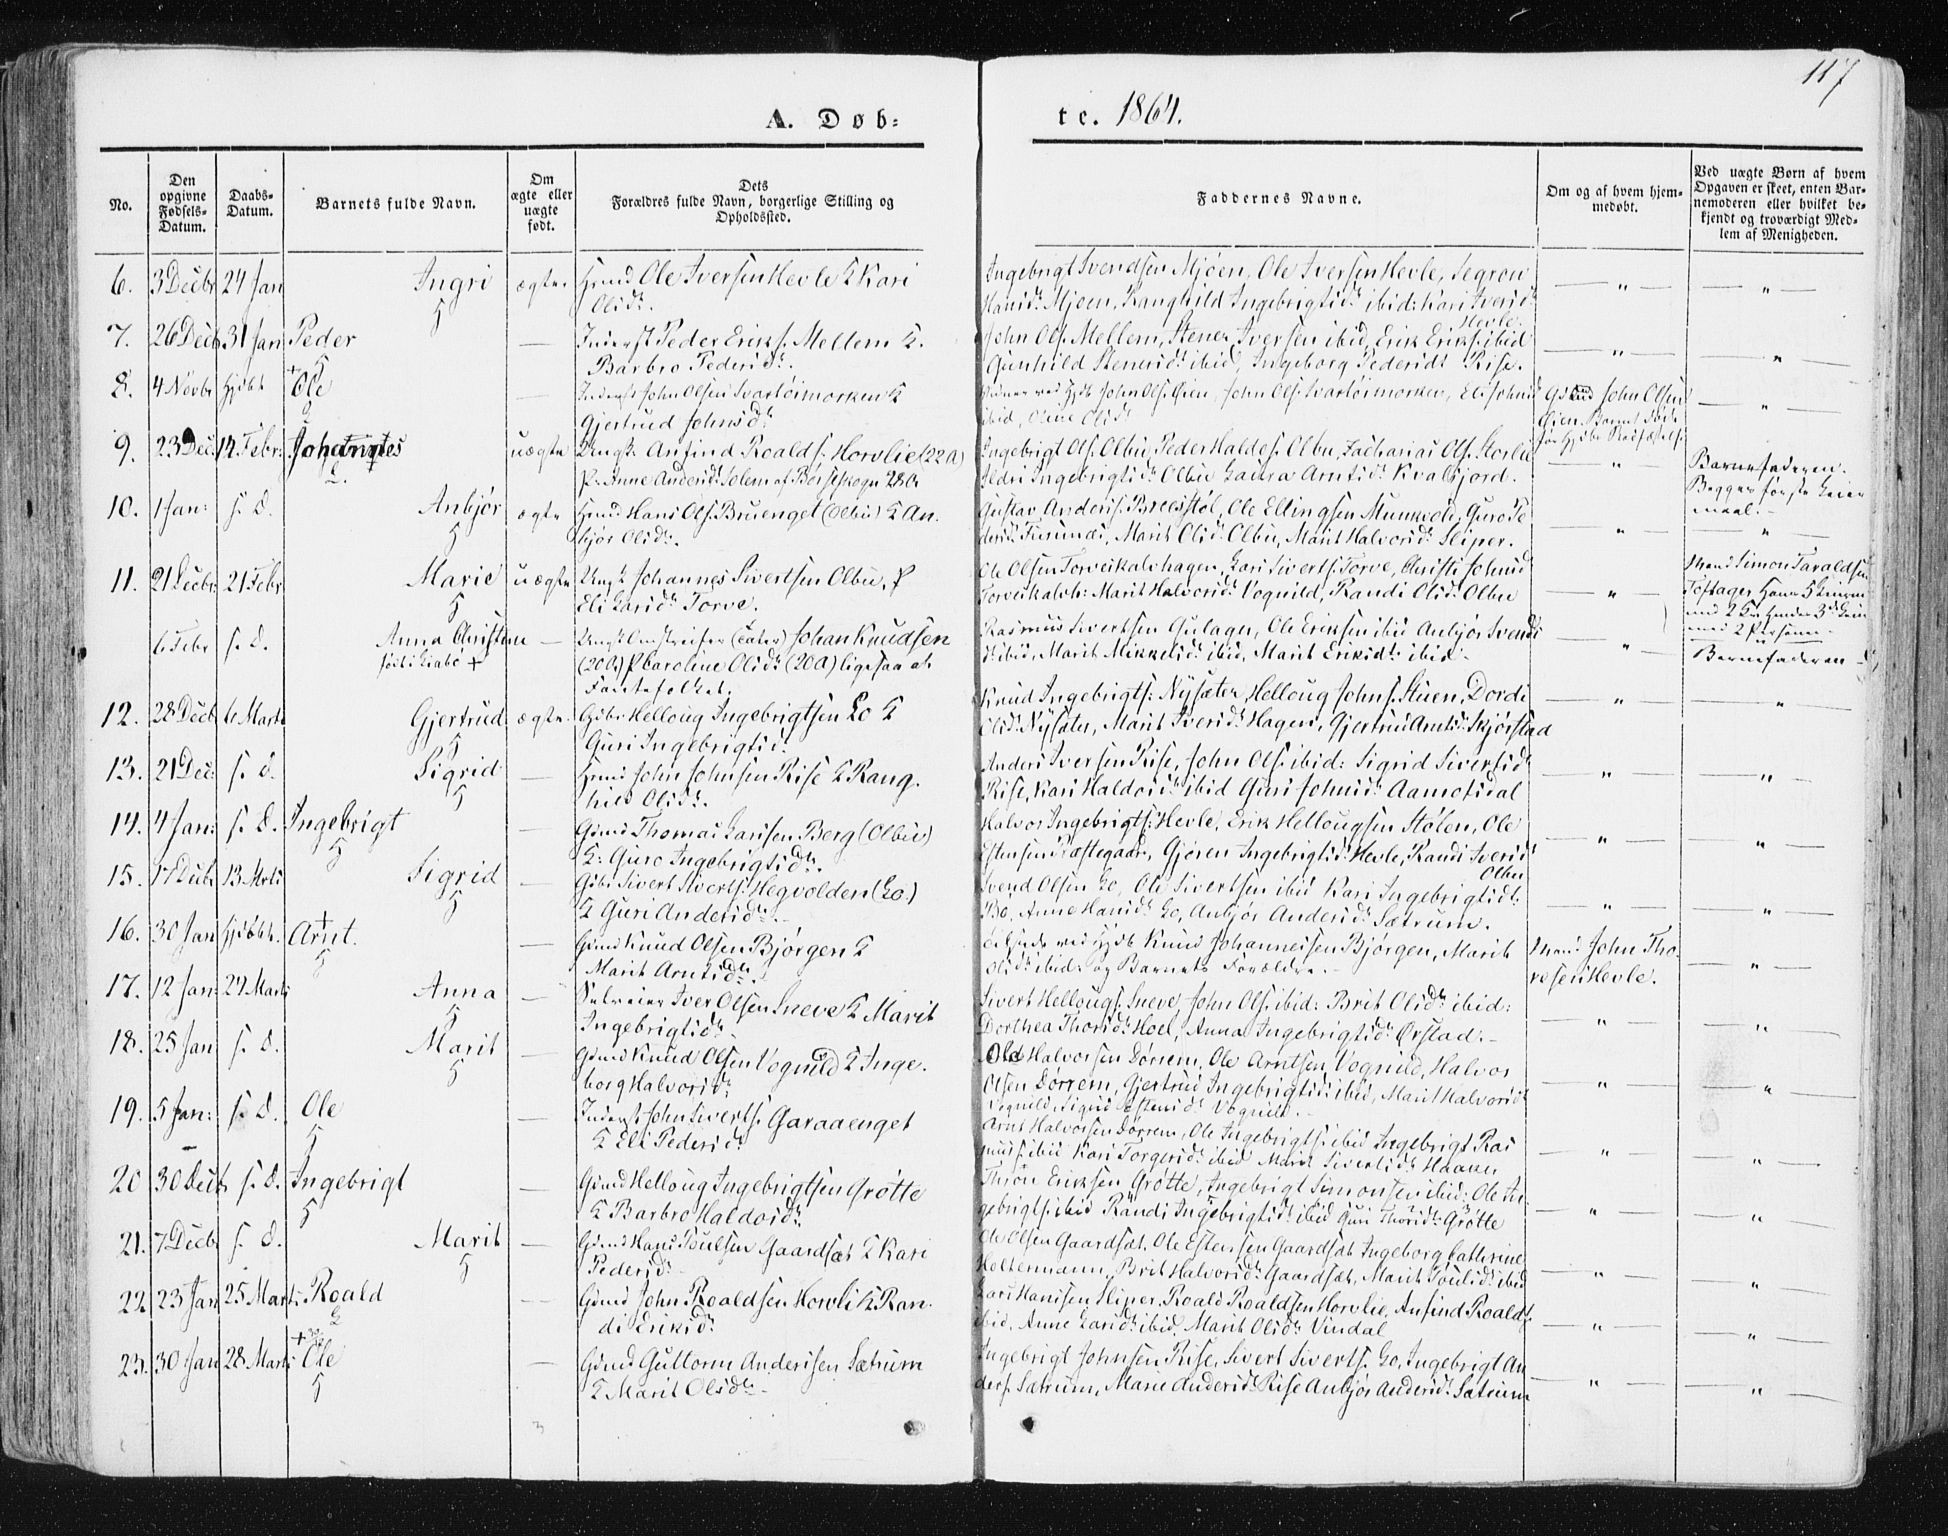 117
A. Døb:
te. 1864.
No.
Den opgivne Fødsels-Datum.
Daabs-Datum.
Barnets fulde Navn.
Om ægte eller uægte født.
Dets
Forældres fulde Navn, borgerlige Stilling og
Opholdssted.
Faddernes Navne.
Om og af hvem hjem-
medøbt.
Ved uægte Børn af hvem
Opgaven er skeet, enten Bar-
nemoderen eller hvilket be-
kjendt og troværdigt Med-
lem af Menigheden.
6. 3 Decbr 24 Jan Ingri ægte Ole Iversen Hevle & Kari
Olsdt.
Ingebrigt Svendsen Mjøen, Ole Iversen Hevle,
Mjøen, Ranghild Ingebrigtsdt ibid: Kari Iversdt
Hevle
7. 26 Decb 31 Jan Peder — Inderst Peder Eriks. Mellem &
Barbro Pedersdt.
John Ols. Mellem, Stener Iversen ibid, Erik Eriks. ibid
Gunhild Stenersdt ibid, Ingeborg Pedersdt Rise.
8. 4 Novbr Hjdbt + Ole — Inderst John Olsen Svartøimorken &
Gjertrud Johnsdt
John Ols. Øien, John Ols. Svartøimorken, Eli Johnsd
ibid, Olsdt
John Olsen
Øien
9. 23 Dec: 14 Febr: Johannes uægte Ungk. Anfind Roalds. Horvlie (22 A)
P. Anne Andersdt Solem af Børseskogn 28 A
Ingebrigt Ols. Olbu, Peder Haldos. Olbu, Zacharias Ols. Storlie
Ildri Ingebrigtsdt Olbu Laura Arntsdt Kvalsjord.
Barnefaderen.
Begges første Leier
maal.
10. 1 Jan: s. D. Anbjør ægte Hans Ols. Bruenget (Olbu) & An.
bjør Olsdt.
Gustav Anders. Bressstøl, Ole Ellingsen Munkvold, Guro Pe
Marit Olsd. Olbu, Marit Halvorsdt Sliper.
11. 21 Decbr: 21 Febr Marie uægte Ungk. Johannes Sivertsen Olbu, P
Eli Larsdt Torve.
Ole Olsen Torveikalvhagen, Lars Siverts. Torve,
Torveikalvh: Marit Halvorsdt Vognild, Randi Olsd. Olbu
Simon Taraldsen
Toftager
6 Febr s. D. Anna Christine — (Tater) Johan Knudsen
+
(20 A) P Caroline Olsdt (20 A) ligesaa af
Fantefolket.
Rasmus Sivertsen Gulager, Ole Eriksen ibid Anbjør Svends
dt ibid, Marit Mikkelsdt ibid, Marit Eriksdt ibid.
Barnefaderen
12. 28 Decb 6 Marts Gjertrud ægte Helloug Ingebrigtsen Lo &
Guri Ingebrigtsd.
Knud Ingebrigts: Nysæter, Helloug Johns. Stuen, Dordi
Olsdt Nysæter, Marit Iversdt Hagen, Gjertrud Arntsdt Skjørstad
13. 21 Dec: s. d. Sigrid — John Johnsen Rise & Rang.
hild Olsdt.
Anders Iversen Rise, John Ols. ibid: Sigrid Siversdt
Rise, Kari Haldosdt ibid Guri Johnsdt Aamotsdal
14. 4 Jan: s. D. Ingebrigt Thomas Larsen Berg (Olbu)
&: Guro Ingebrigtsdt.
Halvor Ingebrigts: Hevle, Erik Hellougsen Stølen, Ole
Estensen Præstegaard, Gjøren Ingebrigtsd: Hevle, Randi Iversdt
Olbu
15. 17 Decbr 13 Mrts Sigrid — Sivert Siverts. Hegvolden (Lo.)
& Guri Andersdt.
Svend Olsen Lo, Ole Sivertsen ibid Kari Ingebrigtsdt:
Bø, Anne Hansdt Lo, Anbjør Andersdt Sætrum.
16. 30 Jan Hjdbt. + Arnt. — Knud Olsen Bjørgen &
Marit Arntsdt.
Knud Johannessen Bjørgen, Marit
Olsdt ibid: og Barnets Forældre.
John Tho-
resen Hevle.
17. 12 Jan: 27 Marts Anna — Selveier Iver Olsen Sneve & Marit
Ingebrigtsdt.
Sivert Hellougs. Sneve, John Ols. ibid: Brit Olsdt ibid:
Dorthea Thorsdt Hoel, Anna Ingebrigtsdt Ørstad.
18. 25 Jan s. D. Marit — Knud Olsen Vognild & Inge.
borg Halvorsdt
Halvorsen Dørrem, Ole Arntsen Vognild, Halvor
Olsen Dørrem, Gjertrud Ingebrigtsd. ibid, Marit Halvorsdt
Vognild, Sigrid Estensdt Vognild.
19. 5 Jan: s. D. Ole — Inderst John Siverts. Garaaenget
& Eli Pedersdt
Arnt Halvorsen Dørrem, Ole Ingebrigts. ibid Ingebrigt Ras
mus. ibid Kari Torgersdt ibid Marit Sivertsdt
20 30 Decb s. D. Ingebrigt — Helloug Ingebrigtsen Grøtte
& Barbro Haldosdt
Thron Eriksen Grøtte, Ingebrigt Simonsen ibid: Ole In-
gebrigts. ibid Randi Ingebrigtsdt ibid Guri Thorsdt: Grøtte
21. 7 Decbr s. d. Marit — Hans Poulsen Gaardsæt & Kari
Pedersd
Ole Olsen Gaardsæt, Ole Estensen Gaardsæt Ingeborg Cathrine
Holtermann, Brit Halvorsdt Gaardsæt, Marit Poulsdt ibid
22 23 Jan 25 Marts Roald — John Roaldsen Horvli & Ran-
di Eriksdt
Lars Hansen Sliper, Roald Roaldsen Horvlie, Anfind Roalds.
ibid, Anne Larsdt ibid, Marit Olsdt Vindal
23. 30 Jan 28 Marts + Ole — Guttorm Andersen Sætrum
& Marit Olsdt
Ingebrigt Johnsen Rise, Sivert Siverts. Lo, Ingebrigt An
ders. Sætrum, Marie Andersdt Rise Anbjør Andersdt Sætrum